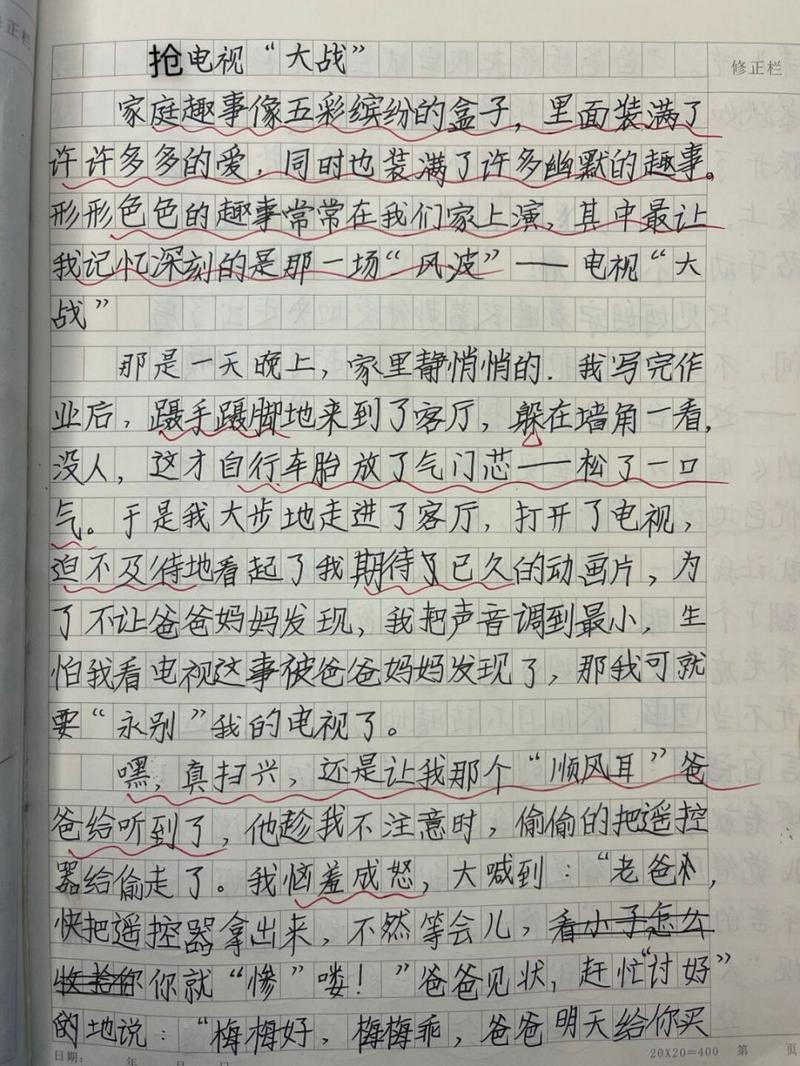 抢电视“大战”
修正栏
家庭趣事像五彩缤纷的盒子，里面装满了
许许多多的爱，同时也装满了许多幽默的趣事。
形形色色的趣事常常在我们家上演，其中最让
我记忆深刻的是那一场“风波”——电视“大
战”
那是一天晚上，家里静悄悄的．我写完作
业后，蹑手蹑脚地来到了客厅，躲在墙角一看，
没人，这才自行车胎放了气门芯——松了一口
气。于是我大步地走进了客厅，打开了电视，
迫不及待地看起了我期待了已久的动画片，为
了不让爸爸妈妈发现，我把声音调到最小，生
怕我看电视这事被爸爸妈妈发现了，那我可就
要“永别”我的电视了。
嘿，真扫兴，还是让我那个“顺风耳”爸
爸给听到了，他趁我不注意时，偷偷的把遥控
器给偷走了。我恼羞成怒，大喊到：“老爸，
快把遥控器拿出来，不然等会儿，看小子怎么
收拾你你就“惨”喽！”爸爸见状，赶忙“讨好”
的地说：“梅梅好，梅梅乖，爸爸明天给你买
日期： 年 月 日
20X20=400 第 页